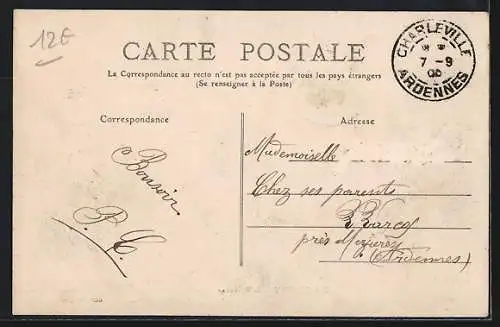 12€
CARTE POSTALE
La Correspondance au recto n'est pas acceptée par tous les pays étrangers
(Se renseigner à la Poste)
CHARLEVILLE
7-9
ARDENNES
Correspondance
Bonsoir
Adresse
Mademoiselle
Chez ses parents
près
(Ardennes)